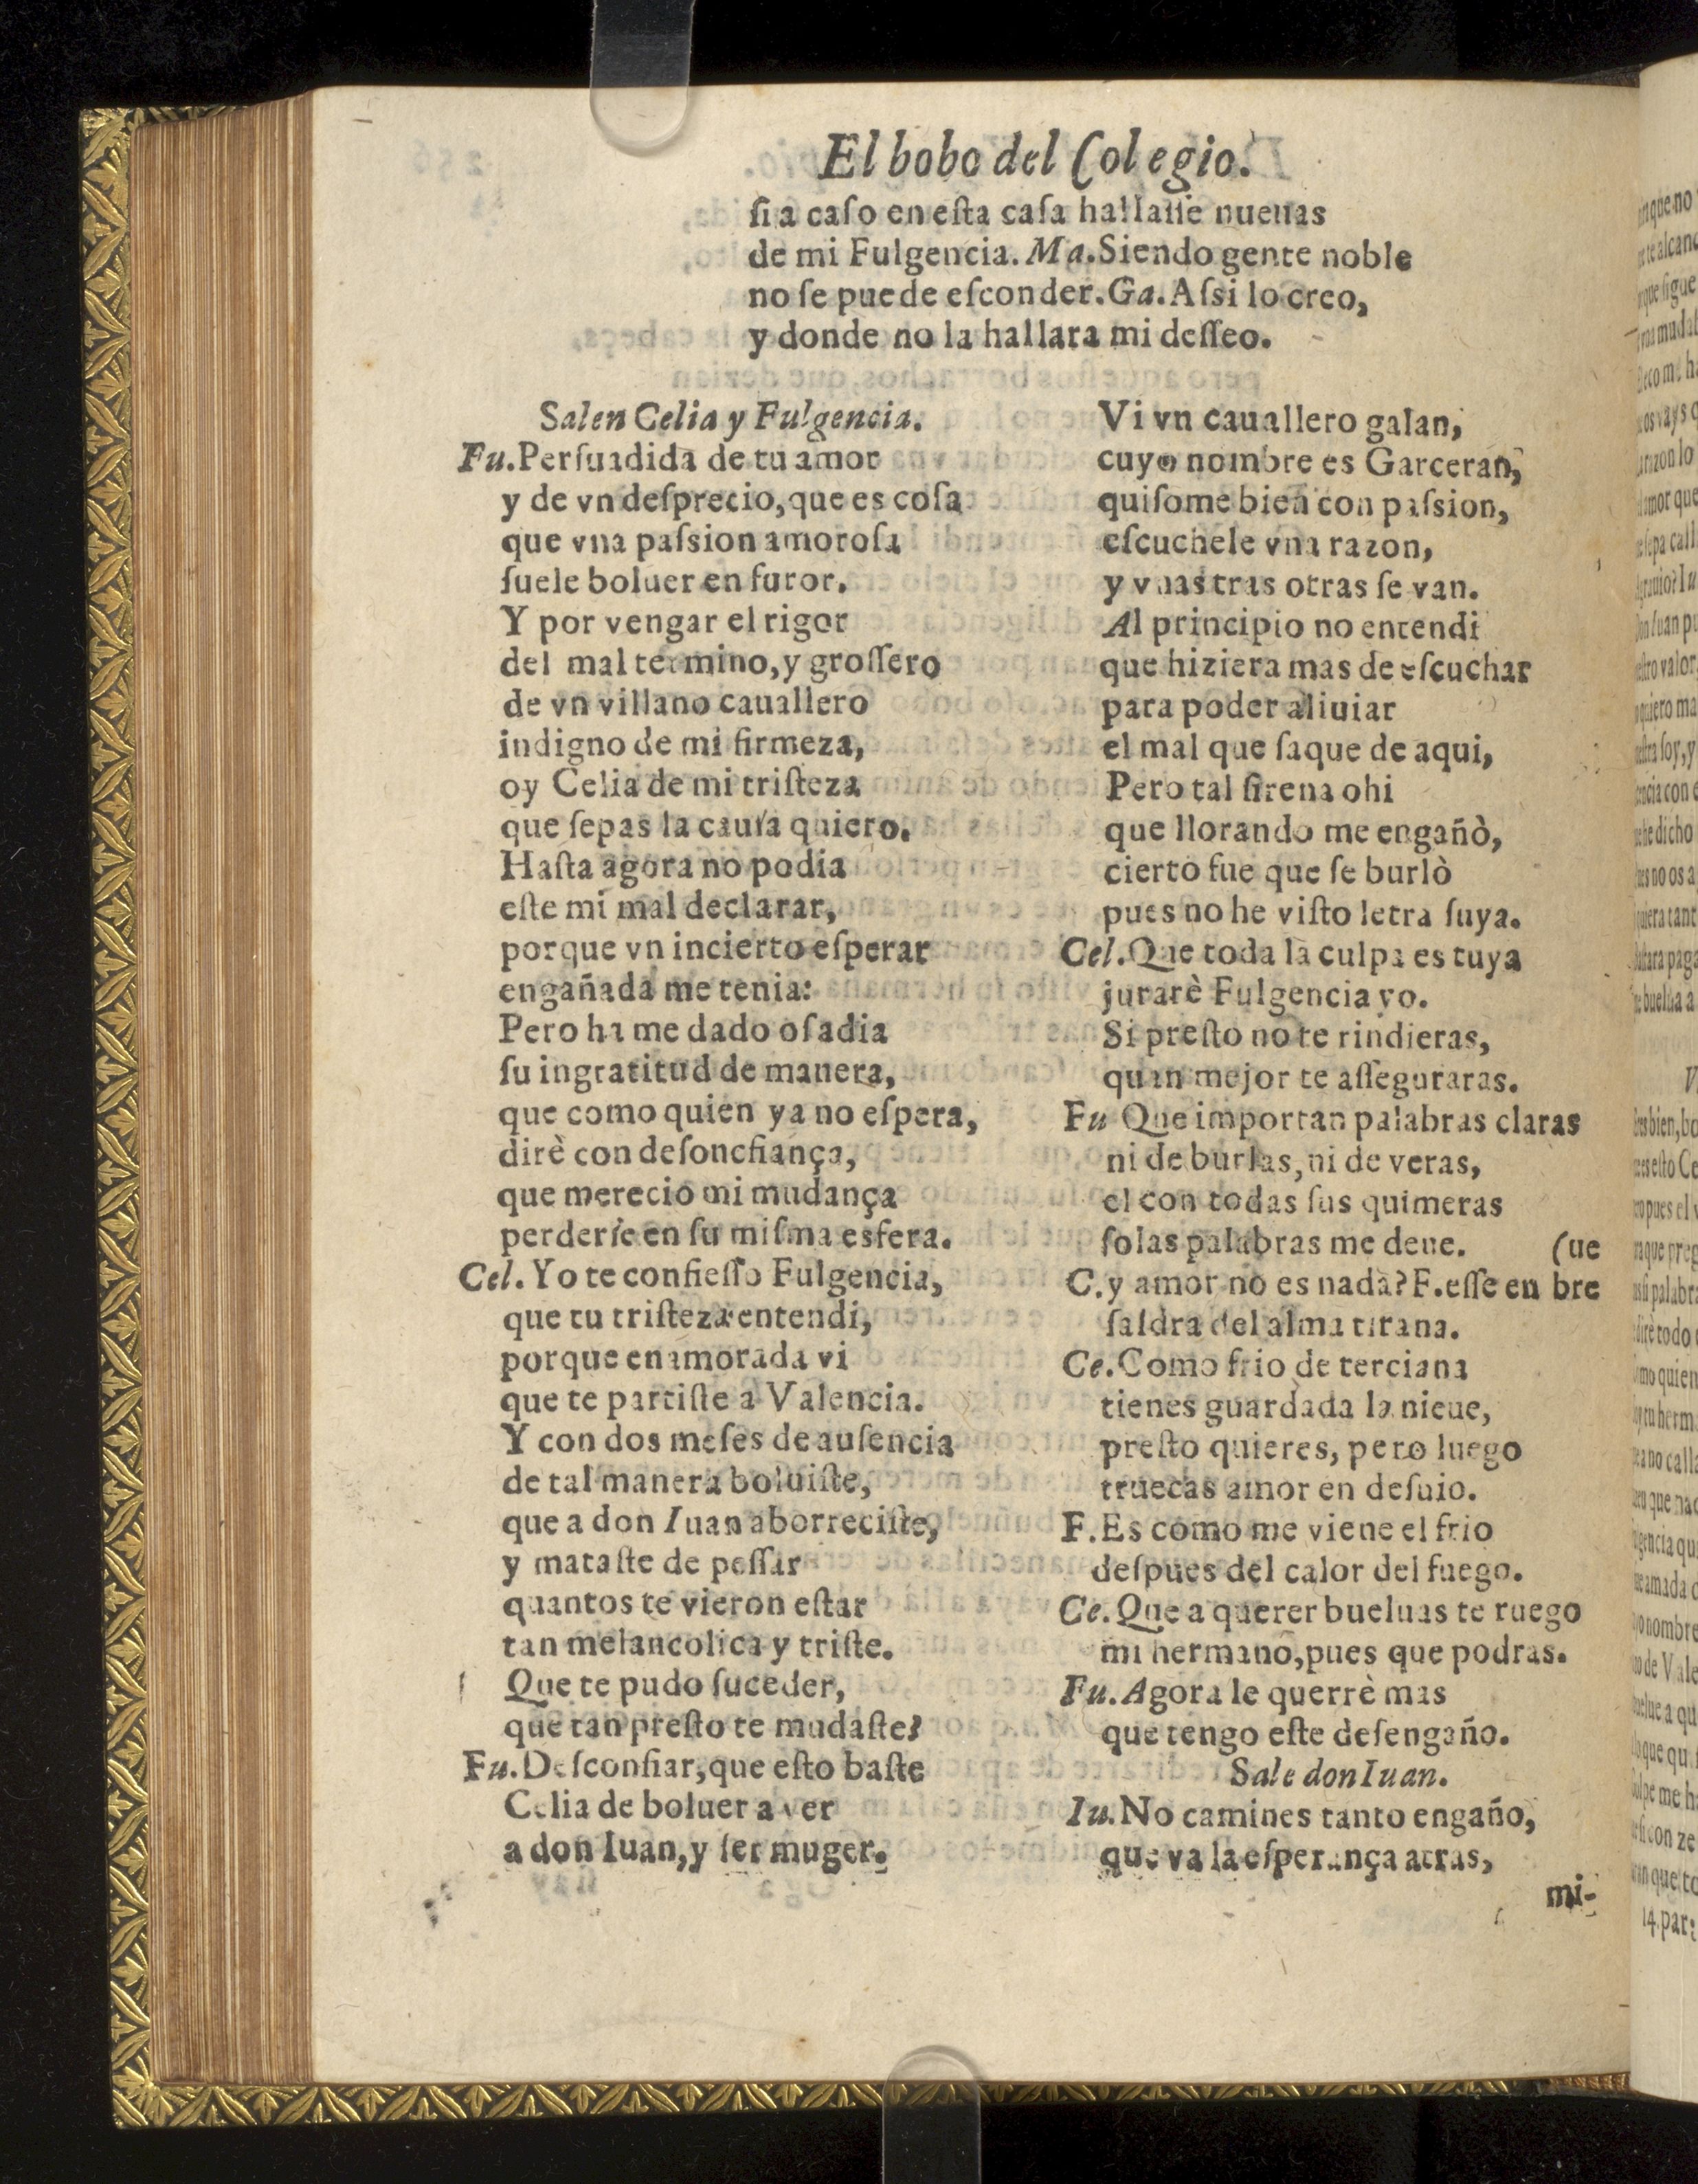 El bobo del Colegio.
si a caso en esta casa hallasse nueuas
de mi Fulgencia. Ma. Siendo gente noble
no se puede esconder. Ga. Assi lo creo,
y donde no la hallara mi desseo.
Salen Celia y Fulgencia.
Fu. Persuadida de tu amor
y de vn desprecio, que es cosa
que vna passion amorosa
suele boluer en furor.
Y por vengar el rigor
del mal termino, y grossero
de vn villano cauallero
indigno de mi firmeza,
oy Celia de mi tristeza
que sepas la causa quiero.
Hasta agora no podia
este mi mal declarar,
porque vn incierto esperar
engañada me tenia:
Pero ha me dado osadia
su ingratitud de manera,
que como quien ya no espera,
dirè con desoncfiança,
que merecio mi mudança
perderse en su misma esfera.
Cel. Yo te confiesso Fulgencia,
que tu tristeza entendi,
porque enamorada vi
que te partiste a Valencia.
Y con dos meses de ausencia
de tal manera boluiste,
que a don Iuan aborreciste,
y mataste de pessar
quantos te vieron estar
tan melancolica y triste.
Que te pudo suceder,
que tan presto te mudaste?
Fu. Desconfiar, que esto baste
Celia de boluer a ver
a don Iuan, y ser muger.
Vi vn cauallero galan,
cuyo nombre es Garceran,
quisome bien con passion,
escuchele vna razon,
y vnas tras otras se van.
Al principio no entendi
que hiziera mas de escuchar
para poder aliuiar
el mal que saque de aqui,
Pero tal sirena ohi
que llorando me engañò,
cierto fue que se burlò
pues no he visto letra suya.
Cel. Que toda la culpa es tuya
jurarè Fulgencia yo.
Si presto no te rindieras,
quan mejor te asseguraras.
Fu Que importan palabras claras
ni de burlas, ni de veras,
el con todas sus quimeras
solas palabras me deue. (ue
C. y amor no es nada? F. esse en bre
saldra del alma tirana.
Ce. Como frio de terciana
tienes guardada la nieue,
presto quieres, pero luego
truecas amor en desuio.
F. Es como me viene el frio
despues del calor del fuego.
Ce. Que a querer bueluas te ruego
mi hermano, pues que podras.
Fu. Agora le querrè mas
que tengo este desengaño.
Sale don Iuan.
Iu. No camines tanto engaño,
que va la esperança atras,
mi-